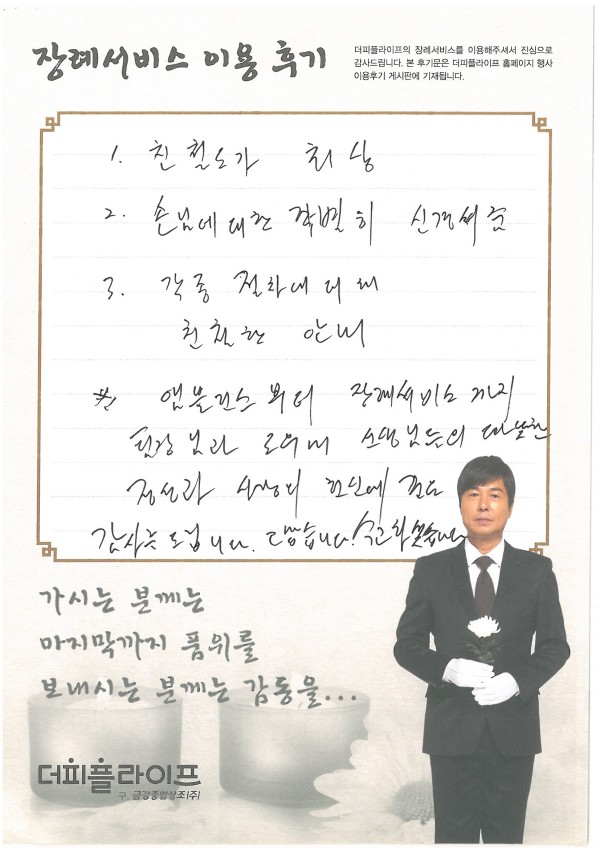 장례서비스 이용 후기
더피플라이프의 장례서비스를 이용해주셔서 진심으로
감사드립니다. 본 후기문은 더피플라이프 홈페이지 행사
이용후기 게시판에 기재됩니다.
1. 친절도가 최상
2. 손님에 대한 각별히 신경써줌
3. 각종 절차에 대해
친절한 안내
※ 앰블런스 부터 장례서비스 까지
팀장님과 도우미 선생님들의
정성과 헌신에
감사를 드립니다. 고맙습니다. 수고하셨습니다
가시는 분께는
마지막까지 품위를
보내시는 분께는 감동을...
더피플라이프
구. 금강종합상조(주)